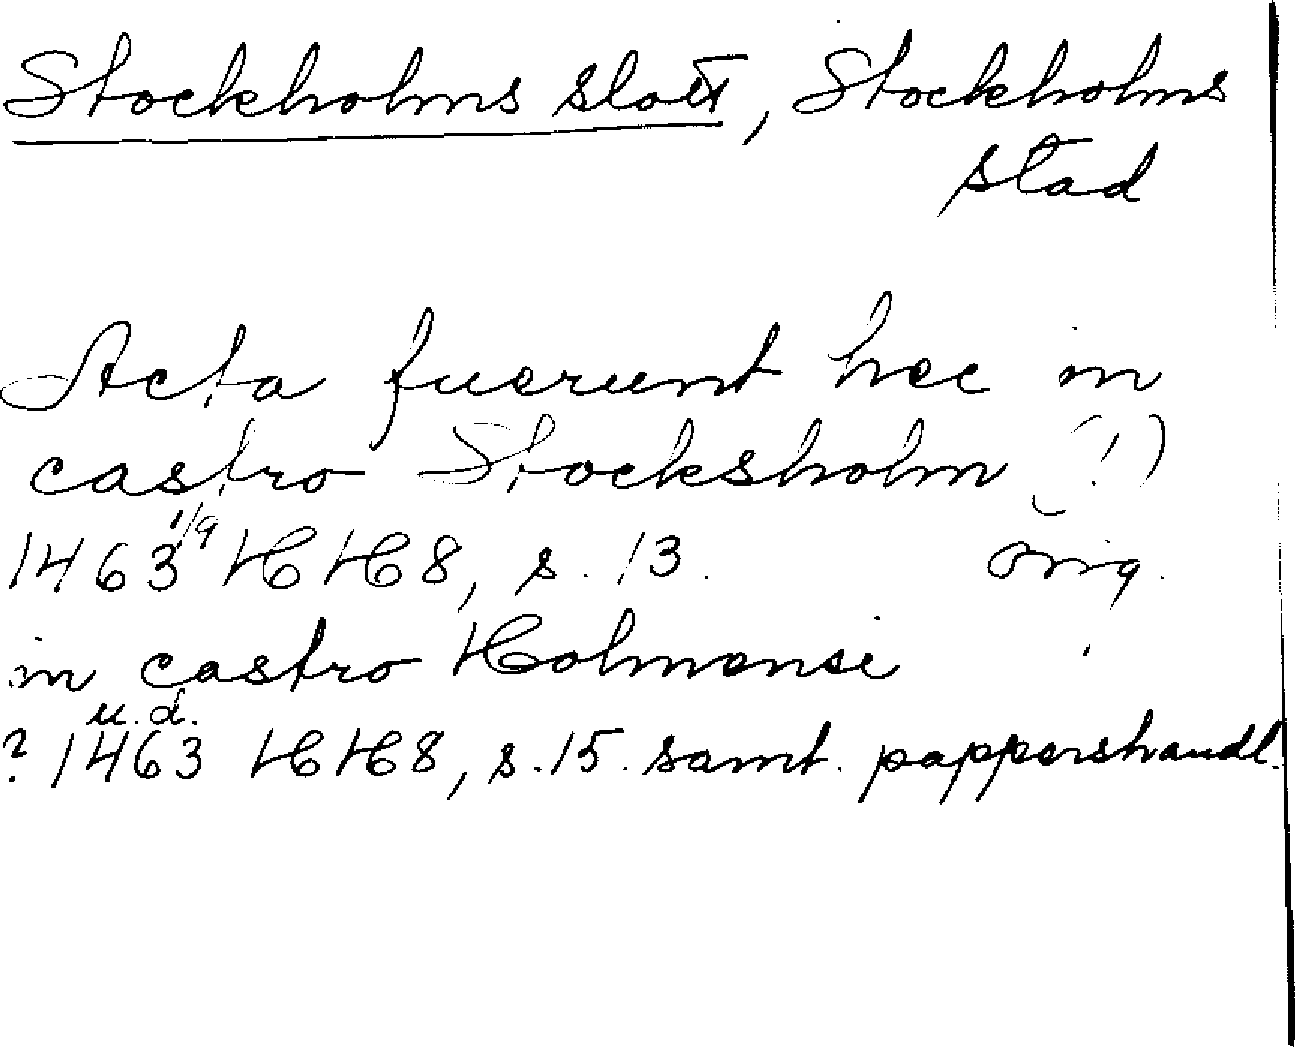 Stockholms slott, Stockholms
stad
Acta fuerunt hec in
castro Stocksholm (!)
1463 1/9 HH8, s. 13. orig.
in castro Holmensi
u.d.
? 1463 HH8, s. 15. samt. pappershandl.